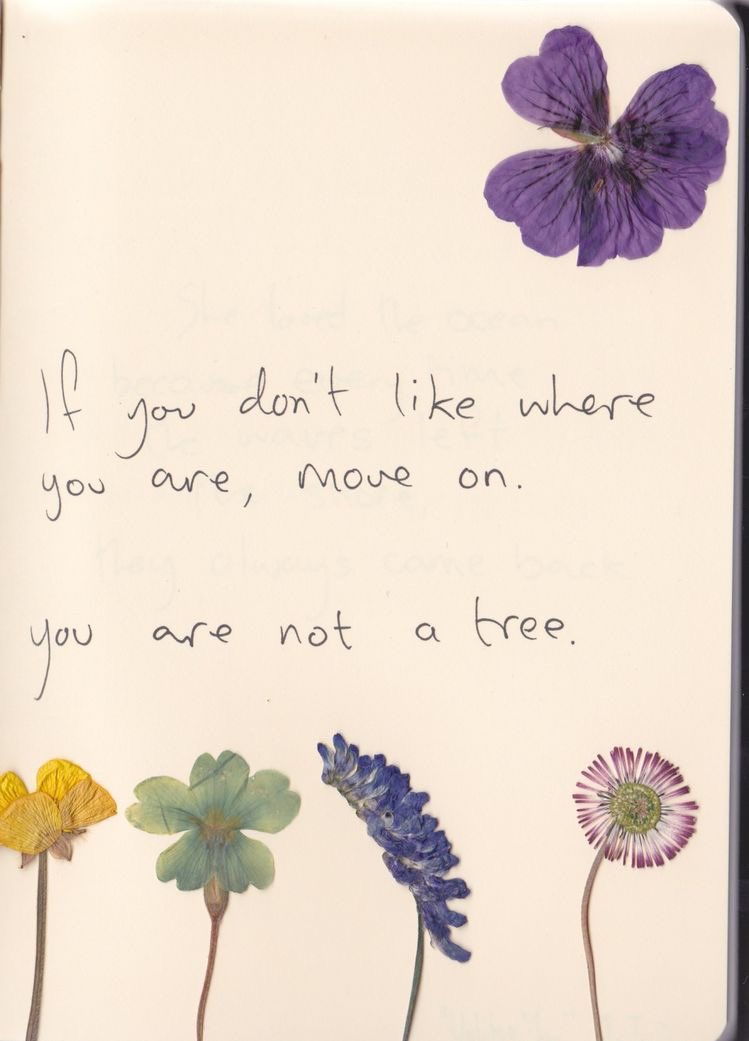 If you don't like where
you are, move on.
you are not a tree.